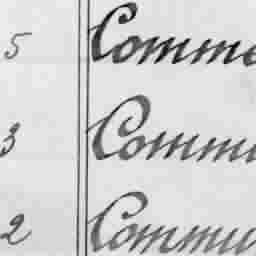 5 Comme
3 Comm
2 Commu